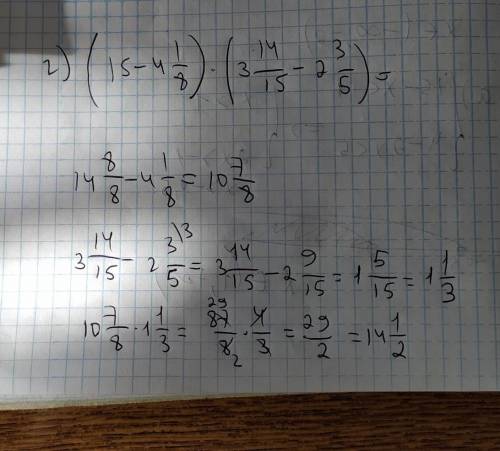 г) (15 - 4 1/8) · (3 14/15 - 2 3/5) =
14 8/8 - 4 1/8 = 10 7/8
3 14/15 - 2 3/5 \3 = 3 14/15 - 2 9/15 = 1 5/15 = 1 1/3
10 7/8 · 1 1/3 = 87 29/8 2 · 4/3 = 29/2 = 14 1/2